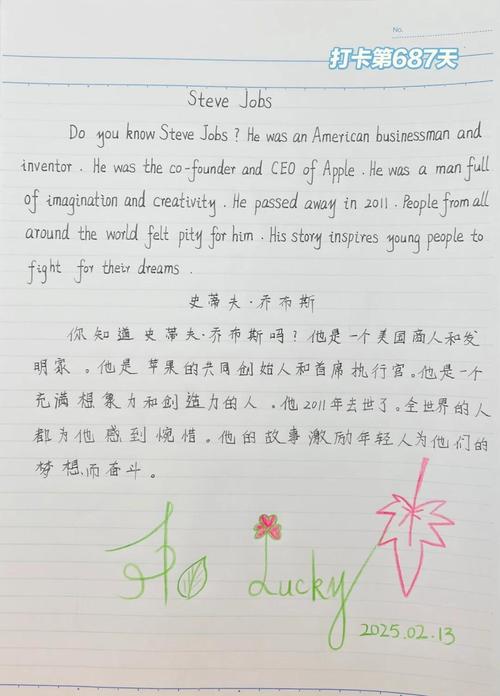 No.
打卡第687天
Steve Jobs
Do you know Steve Jobs? He was an American businessman and
inventor. He was the co-founder and CEO of Apple. He was a man full
of imagination and creativity. He passed away in 2011. People from all
around the world felt pity for him. His story inspires young people to
fight for their dreams.
史蒂夫·乔布斯
你知道史蒂夫·乔布斯吗?他是一个美国商人和发
明家。他是苹果的共同创始人和首席执行官。他是一个
充满想象力和创造力的人。他2011年去世了。全世界的人
都为他感到惋惜。他的故事激励年轻人为他们的
梦想而奋斗。
Lucky
2025.02.13